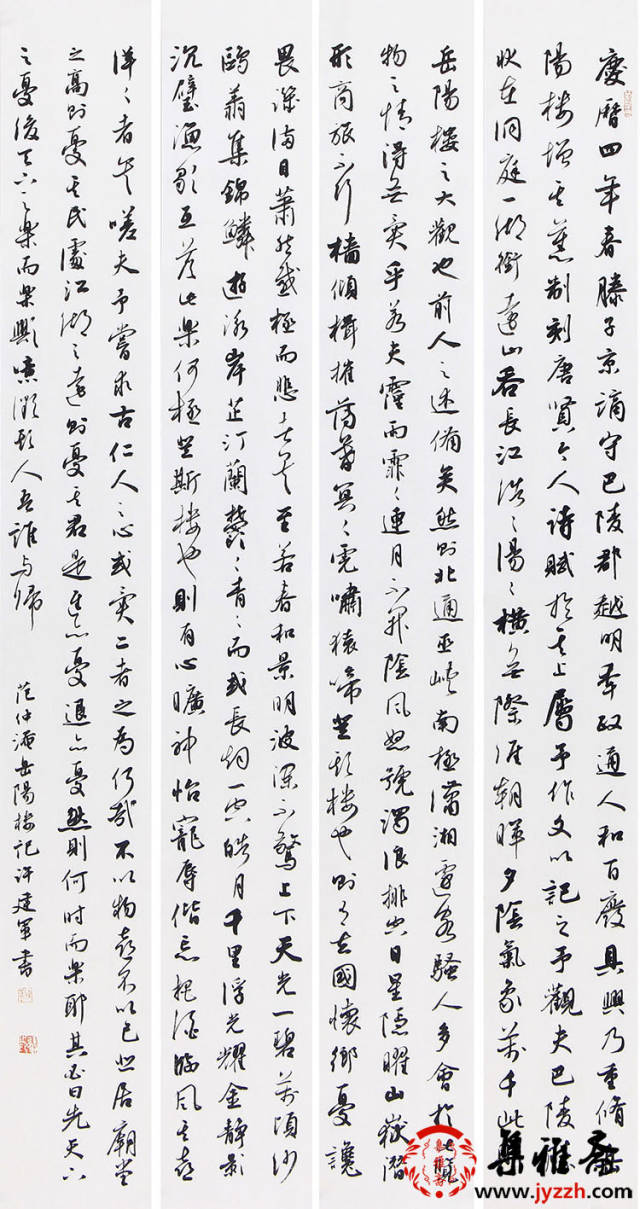 慶曆四年春滕子京謫守巴陵郡越明年政通人和百廢具興乃重脩岳
陽樓增其舊制刻唐賢今人詩賦於其上屬予作文以記之予觀夫巴陵
狀在洞庭一湖銜遠山吞長江浩々湯々橫無際涯朝暉夕陰氣象萬千此
岳陽樓之大觀也前人之述備矣然則北通巫峽南極瀟湘遷客騷人多會於此覽
物之情得無異乎若夫霪雨霏々連月不開陰風怒號濁浪排空日星隱曜山嶽潛
形商旅不行檣傾楫摧薄暮冥々虎嘯猿啼登斯樓也則有去國懷鄉憂讒
畏譏滿目蕭然感極而悲者矣至若春和景明波瀾不驚上下天光一碧萬頃沙
鷗翔集錦鱗游泳岸芷汀蘭鬱々青々而或長煙一空皓月千里浮光耀金靜影
沉璧漁歌互答此樂何極登斯樓也則有心曠神怡寵辱偕忘把酒臨風其喜
洋々者矣嗟夫予嘗求古仁人之心或異二者之為何哉不以物喜不以己悲居廟堂
之高則憂其民處江湖之遠則憂其君是進亦憂退亦憂然則何時而樂耶其必曰先天下
之憂後天下之樂而樂歟噫微斯人吾誰與歸
范仲淹岳陽樓記許建軍書
集雅斋
www.jyzzh.com